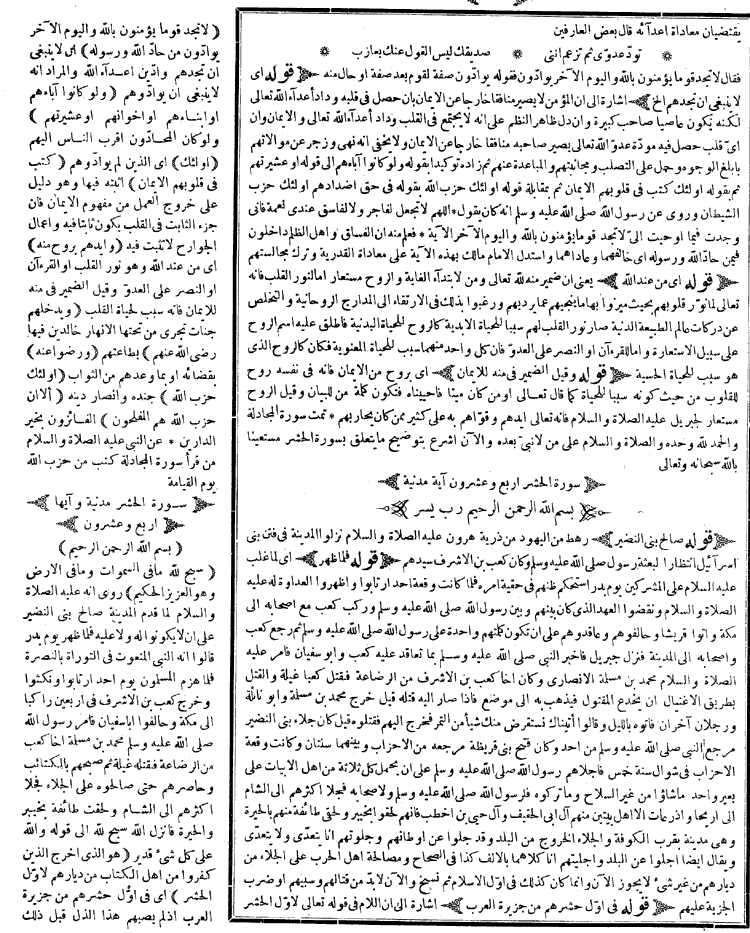 يقتضيان معاداة اعدآئه قال بعض العارفين
تودّ عدوّى ثم تزعم اننى * صديقك ليس القول عنك بعازب
فقال لا تجد قوما يؤمنون بالله واليوم الآخر يوادّون فقوله يوادّون صفة لقوم بعد صفة او حال منه ﴿ قوله اى
لا ينبغى ان تجدهم الخ ﴾ اشارة الى ان المؤمن لا يصير منافقا خارجا عن الايمان بان حصل فى قلبه وداد أعدآء الله تعالى
لكنه يكون عاصيا صاحب كبيرة وان دل ظاهر النظم على انه لا يجتمع فى القلب وداد أعدآء الله تعالى والايمان وان
اىّ قلب حصل فيه مودّة عدوّ الله تعالى يصير صاحبه منافقا خارجا عن الايمان ولا يخفى انه نهى وزجر عن موالاتهم
بابلغ الوجوه وحمل على التصلب ومجانبتهم والمباعدة عنهم ثم زاده توكيدا بقوله ولو كانوا آباءهم الى قوله او عشيرتهم
ثم بقوله اولئك كتب فى قلوبهم الايمان ثم بمقابلة قوله اولئك حزب الله بقوله فى حق اضدادهم اولئك حزب
الشيطان وروى عن رسول الله صلى الله عليه وسلم انه كان يقول * اللهم لا تجعل لفاجر ولا لفاسق عندى نعمة فانى
وجدت فيما اوحيت الىّ لا تجد قوما يؤمنون بالله واليوم الآخر الآية * فعلم منه ان الفساق واهل الظلم داخلون
فيمن حادّ الله ورسوله اى خالفهما وعاداهما واستدل الامام مالك بهذه الآية على معاداة القدرية وترك مجالستهم
﴿ قوله اى من عند الله ﴾ يعنى ان ضمير منه لله تعالى ومن لابتدآء الغاية والروح مستعار اما لنور القلب فانه
تعالى لما نوّر قلوبهم بحيث ميزوا بها ما ينجيهم عما يرديهم ورغبوا بذلك فى الارتقاء الى المدارج الروحانية والتخلص
عن دركات عالم الطبيعة الدنية صار نور القلب لهم سببا للحياة الابدية كالروح للحياة البدنية فاطلق عليه اسم الروح
على سبيل الاستعارة واما للقرءآن او النصر على العدوّ فان كل واحد منهما سبب للحياة المعنوية فكان كالروح الذى
هو سبب للحياة الحسية ﴿ قوله وقيل الضمير فى منه للايمان ﴾ اى بروح من الايمان فانه فى نفسه روح
للقلوب من حيث كونه سببا للحياة كما قال تعالى اومن كان ميتا فاحييناه فتكون كلمة من للبيان وقيل الروح
مستعار لجبريل عليه الصلاة والسلام فانه تعالى ايدهم وقوّاهم به على كثير ممن كان يحاربهم * تمت سورة المجادلة
والحمد لله وحده والصلاة والسلام على من لا نبىّ بعده والآن اشرع بتوضيح ما يتعلق بسورة الحشر مستعينا
بالله سبحانه وتعالى
﴿ سورة الحشر اربع وعشرون آية مدنية ﴾
﴿ بسم الله الرحمن الرحيم رب يسر ﴾
﴿ قوله صالح بنى النضير ﴾ رهط من اليهود من ذرية هرون عليه الصلاة والسلام نزلوا المدينة فى فتن بنى
اسرآئيل انتظارا لبعثة رسول الله صلى الله عليه وسلم وكان كعب بن الاشرف سيدهم ﴿ قوله فلما ظهر ﴾ اى لما غلب
عليه السلام على المشركين يوم بدر استحكم ظنهم فى حقية امره فلما كانت وقعة احد ارتابوا واظهروا العداوة له عليه
الصلاة والسلام ونقضوا العهد الذى كان بينهم وبين رسول الله صلى الله عليه وسلم وركب كعب مع اصحابه الى
مكة واتوا قريشا وحالفوهم وعاقدوهم على ان تكون كلمتهم واحدة على رسول الله صلى الله عليه وسلم ثم رجع كعب
واصحابه الى المدينة فنزل جبريل فاخبر النبى صلى الله عليه وسلم بما تعاقد عليه كعب وابو سفيان فامر عليه
الصلاة والسلام محمد بن مسلمة الانصارى وكان اخا كعب بن الاشرف من الرضاعة فقتل كعبا غيلة والقتل
بطريق الاغتيال ان يخدع المقتول فيذهب به الى موضع فاذا صار اليه قتله قيل خرج محمد بن مسلمة وابو نائلة
ورجلان آخران فاتوه بالليل وقالوا أتيناك نستقرض منك شيأ من التمر فخرج اليهم فقتلوه قيل كان جلاء بنى النضير
مرجع النبى صلى الله عليه وسلم من احد وكان فتح بنى قريظة مرجعه من الاحزاب وبينهما سنتان وكانت وقعة
الاحزاب فى شوال سنة خمس فاجلاهم رسول الله صلى الله عليه وسلم على ان يحمل كل ثلاثة من اهل الابيات على
بعير واحد ماشاؤا من غير السلاح وما تركوه فلرسول الله صلى الله عليه وسلم ولاصحابه فجلا اكثرهم الى الشام
الى اريحا واذرعات الا اهل بيتين منهم آل ابى الحقيق وآل حيى بن اخطب فانهم لحقوا بخيبر ولحق طائفة منهم بالحيرة
وهى مدينة بقرب الكوفة والجلاء الخروج من البلد وقد جلوا عن اوطانهم وجلوتهم انا يتعدّى ولا يتعدّى
ويقال ايضا اجلوا عن البلد واجليتهم انا كلاهما بالالف كذا فى الصحاح ومصالحة اهل الحرب على الجلاء من
ديارهم من غير شئ لا يجوز الآن وانما كان كذلك فى اوّل الاسلام ثم نسخ والآن لا بدّ من قتالهم وسبيهم او ضرب
الجزية عليهم ﴿ قوله فى اوّل حشرهم من جزيرة العرب ﴾ اشارة الى ان اللام فى قوله تعالى لاوّل الحشر
( لا تجد قوما يؤمنون بالله واليوم الآخر
يوادّون من حادّ الله ورسوله ) اى لا ينبغى
ان تجدهم وادّين اعدآء الله والمراد انه
لا ينبغى ان يوادّوهم ( ولو كانوا آباءهم
او ابناءهم او اخوانهم او عشيرتهم )
ولو كان المحادّون اقرب الناس اليهم
( اولئك ) اى الذين لم يوادّوهم ( كتب
فى قلوبهم الايمان ) اثبته فيها وهو دليل
على خروج العمل من مفهوم الايمان فان
جزء الثابت فى القلب يكون ثابتا فيه واعمال
الجوارح لا تثبت فيه ( وايدهم بروح منه )
اى من عند الله وهو نور القلب او القرءآن
او النصر على العدوّ وقيل الضمير فى منه
للايمان فانه سبب لحياة القلب ( ويدخلهم
جنات تجرى من تحتها الانهار خالدين فيها
رضى الله عنهم ) بطاعتهم ( ورضوا عنه )
بقضائه او بما وعدهم من الثواب ( اولئك
حزب الله ) جنده وانصار دينه ( ألا ان
حزب الله هم المفلحون ) الفائزون بخير
الدارين * عن النبى عليه الصلاة والسلام
من قرأ سورة المجادلة كتب من حزب الله
يوم القيامة
﴿ سورة الحشر مدنية وآيها ﴾
﴿ اربع وعشرون ﴾
( بسم الله الرحمن الرحيم )
( سبح لله ما فى السموات وما فى الارض
وهو العزيز الحكيم ) روى انه عليه الصلاة
والسلام لما قدم المدينة صالح بنى النضير
على ان لا يكونوا له ولا عليه فلما ظهر يوم بدر
قالوا انه النبى المنعوت فى التوراة بالنصرة
فلما هزم المسلمون يوم احد ارتابوا ونكثوا
وخرج كعب بن الاشرف فى اربعين راكبا
الى مكة وحالفوا ابا سفيان فامر رسول الله
صلى الله عليه وسلم محمد بن مسلمة اخا كعب
من الرضاعة فقتله غيلة ثم صبحهم بالكتائب
وحاصرهم حتى صالحوه على الجلاء فجلا
اكثرهم الى الشام ولحقت طائفة بخيبر
والحيرة فانزل الله سبح لله الى قوله والله
على كل شئ قدير ( هو الذى اخرج الذين
كفروا من اهل الكتاب من ديارهم لاوّل
الحشر ) اى فى اوّل حشرهم من جزيرة
العرب اذ لم يصبهم هذا الذل قبل ذلك